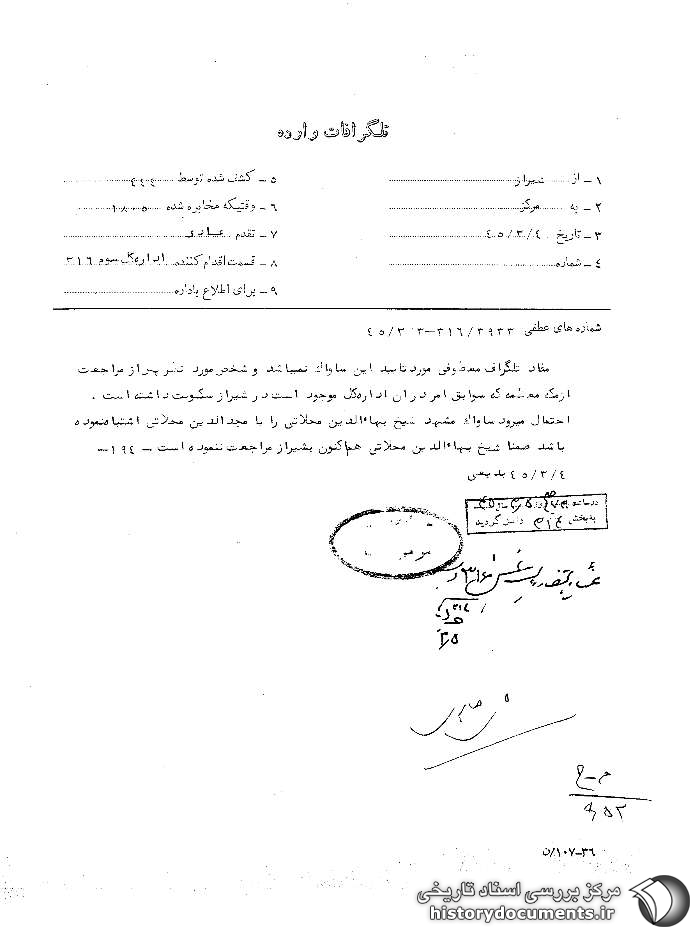 تلگرافات وارده
۱ـ از شیراز
۲ـ به مرکز
۳ـ تاریخ ٤٥/٣/٤
٤ـ شماره
٥ـ کشف شده توسط
٦ـ وقتیکه مخابره شده ۱۸۰۵
۷ـ تقدم عادی
۸ـ قسمت اقدام کننده اداره کل سوم ۳۱٦
۹ـ برای اطلاع باداره
شماره های عطفی ۳۱٦/۳۹۳۳ـ٤٥/۳/۳
مفاد تلگراف معطوفی مورد تایید این ساواک نمیباشد و شخص مورد نظر پس از مراجعت
از مکه معظمه که سوابق امر در ان اداره کل موجود است در شیراز سکونت داشته است .
احتمال میرود ساواک مشهد شیخ بهاءالدین محلاتی را با مجدالدین محلاتی اشتباه نموده
باشد ضمنا شیخ بهاءالدین محلاتی هم اکنون بشیراز مراجعت ننموده است ـ ۱۹٤ـ
٤٥/۳/٤ بدیعی
در ساعت
به بخش ۳۱۶ داخل گردید
۳۱۶
م-ح
۳٦ـ۱۰۷/ن
مرکز بررسی اسناد تاریخی
historydocuments.ir